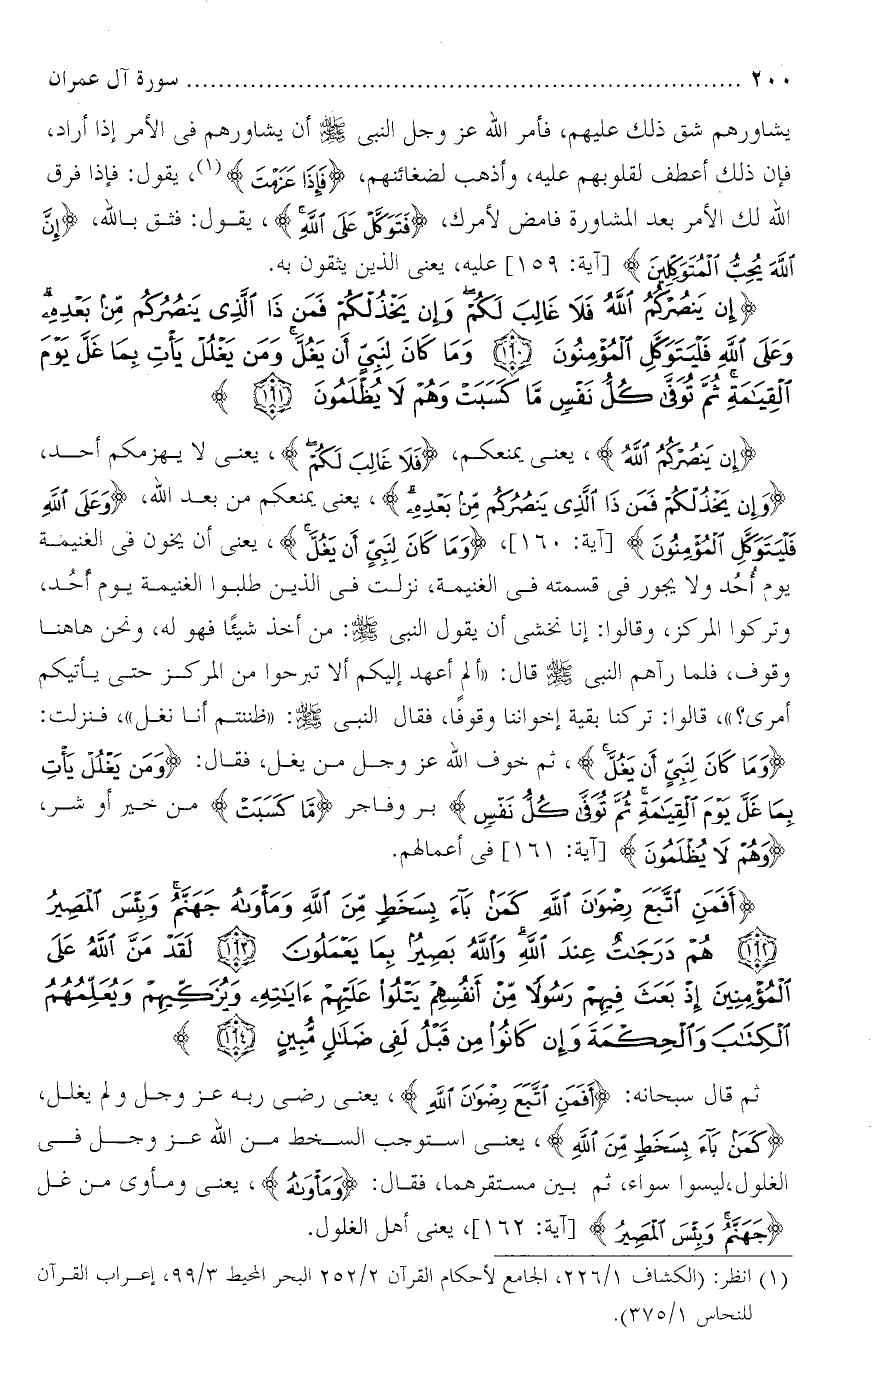 ٢٠٠ ........................................................ سورة آل عمران
يشاورهم شق ذلك عليهم، فأمر الله عز وجل النبى ﷺ أن يشاورهم فى الأمر إذا أراد،
فإن ذلك أعطف لقلوبهم عليه، وأذهب لضغائنهم، ﴿فَإِذَا عَزَمْتَ﴾(١)، يقول: فإذا فرق
الله لك الأمر بعد المشاورة فامض لأمرك، ﴿فَتَوَكَّلْ عَلَى ٱللَّهِ﴾، يقول: فثق بالله، ﴿إِنَّ
ٱللَّهَ يُحِبُّ ٱلْمُتَوَكِّلِينَ﴾ [آية: ١٥٩] عليه، يعنى الذين يثقون به.
﴿إِن يَنصُرْكُمُ ٱللَّهُ فَلَا غَالِبَ لَكُمْ ۖ وَإِن يَخْذُلْكُمْ فَمَن ذَا ٱلَّذِى يَنصُرُكُم مِّنۢ بَعْدِهِۦ ۗ
وَعَلَى ٱللَّهِ فَلْيَتَوَكَّلِ ٱلْمُؤْمِنُونَ ١٦٠ وَمَا كَانَ لِنَبِىٍّ أَن يَغُلَّ ۚ وَمَن يَغْلُلْ يَأْتِ بِمَا غَلَّ يَوْمَ
ٱلْقِيَـٰمَةِ ۚ ثُمَّ تُوَفَّىٰ كُلُّ نَفْسٍ مَّا كَسَبَتْ وَهُمْ لَا يُظْلَمُونَ ١٦١﴾
﴿إِن يَنصُرْكُمُ ٱللَّهُ﴾، يعنى يمنعكم، ﴿فَلَا غَالِبَ لَكُمْ ۖ﴾، يعنى لا يهزمكم أحد،
﴿وَإِن يَخْذُلْكُمْ فَمَن ذَا ٱلَّذِى يَنصُرُكُم مِّنۢ بَعْدِهِۦ ۗ﴾، يعنى يمنعكم من بعد الله، ﴿وَعَلَى ٱللَّهِ
فَلْيَتَوَكَّلِ ٱلْمُؤْمِنُونَ﴾ [آية: ١٦٠]، ﴿وَمَا كَانَ لِنَبِىٍّ أَن يَغُلَّ ۚ﴾، يعنى أن يخون فى الغنيمة
يوم أُحُد ولا يجور فى قسمته فى الغنيمة، نزلت فى الذين طلبوا الغنيمة يوم أُحُد،
وتركوا المركز، وقالوا: إنا نخشى أن يقول النبى ﷺ: من أخذ شيئًا فهو له، ونحن هاهنا
وقوف، فلما رآهم النبى ﷺ قال: «ألم أعهد إليكم ألا تبرحوا من المركز حتى يأتيكم
أمرى؟»، قالوا: تركنا بقية إخواننا وقوفًا، فقال النبى ﷺ: «ظننتم أنا نغل»، فنزلت:
﴿وَمَا كَانَ لِنَبِىٍّ أَن يَغُلَّ ۚ﴾، ثم خوف الله عز وجل من يغل، فقال: ﴿وَمَن يَغْلُلْ يَأْتِ
بِمَا غَلَّ يَوْمَ ٱلْقِيَـٰمَةِ ۚ ثُمَّ تُوَفَّىٰ كُلُّ نَفْسٍ﴾ بر وفاجر ﴿مَّا كَسَبَتْ﴾ من خير أو شر،
﴿وَهُمْ لَا يُظْلَمُونَ﴾ [آية: ١٦١] فى أعمالهم.
﴿أَفَمَنِ ٱتَّبَعَ رِضْوَٰنَ ٱللَّهِ كَمَنۢ بَآءَ بِسَخَطٍ مِّنَ ٱللَّهِ وَمَأْوَىٰهُ جَهَنَّمُ ۚ وَبِئْسَ ٱلْمَصِيرُ
١٦٢ هُمْ دَرَجَـٰتٌ عِندَ ٱللَّهِ ۗ وَٱللَّهُ بَصِيرٌۢ بِمَا يَعْمَلُونَ ١٦٣ لَقَدْ مَنَّ ٱللَّهُ عَلَى
ٱلْمُؤْمِنِينَ إِذْ بَعَثَ فِيهِمْ رَسُولًا مِّنْ أَنفُسِهِمْ يَتْلُوا۟ عَلَيْهِمْ ءَايَـٰتِهِۦ وَيُزَكِّيهِمْ وَيُعَلِّمُهُمُ
ٱلْكِتَـٰبَ وَٱلْحِكْمَةَ وَإِن كَانُوا۟ مِن قَبْلُ لَفِى ضَلَـٰلٍ مُّبِينٍ ١٦٤﴾
ثم قال سبحانه: ﴿أَفَمَنِ ٱتَّبَعَ رِضْوَٰنَ ٱللَّهِ﴾، يعنى رضى ربه عز وجل ولم يغلل،
﴿كَمَنۢ بَآءَ بِسَخَطٍ مِّنَ ٱللَّهِ﴾، يعنى استوجب السخط من الله عز وجل فى
الغلول،ليسوا سواء، ثم بين مستقرهما، فقال: ﴿وَمَأْوَىٰهُ﴾، يعنى ومأوى من غل
﴿جَهَنَّمُ ۚ وَبِئْسَ ٱلْمَصِيرُ﴾ [آية: ١٦٢]، يعنى أهل الغلول.
(١) انظر: (الكشاف ٢٢٦/١، الجامع لأحكام القرآن ٢٥٢/٢ البحر المحيط ٩٩/٣، إعراب القرآن
للنحاس ٣٧٥/١).